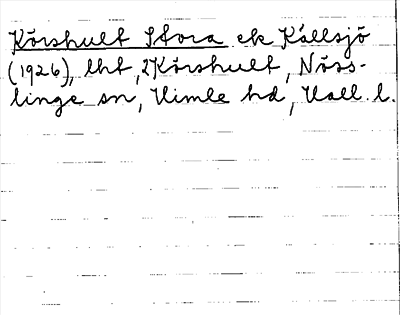 Körshult Stora ek Källsjö
(1926), lht, 2Körshult, Nöss-
linge sn, Himle hd, Hall. l.